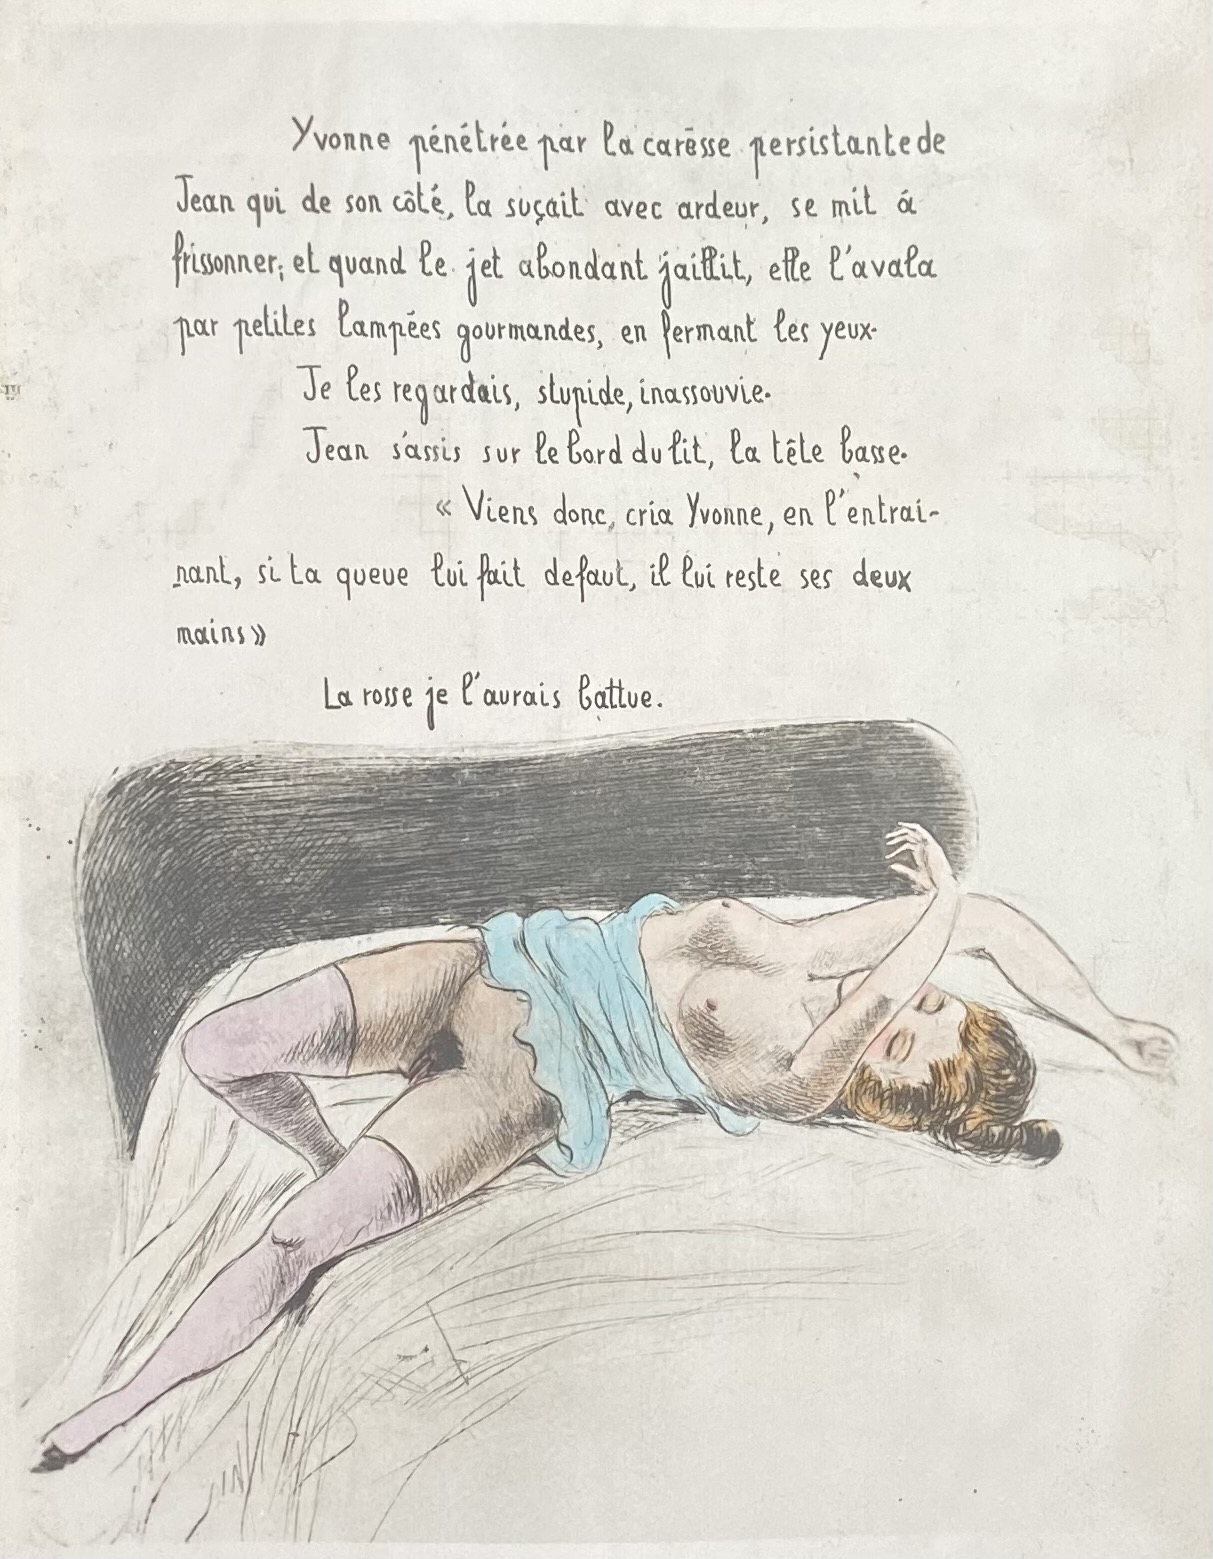 Yvonne pénétrée par la carēsse persistante de
Jean qui de son côté, la suçait avec ardeur, se mit á
frissonner; et quand le jet abondant jaillit, elle l'avala
par petites lampées gourmandes, en fermant les yeux.
Je les regardais, stupide, inassouvie.
Jean s'assis sur le bord du lit, la tête basse.
« Viens donc, cria Yvonne, en l'entrai-
nant, si ta queue lui fait defaut, il lui reste ses deux
mains »
La rosse je l'aurais battue.